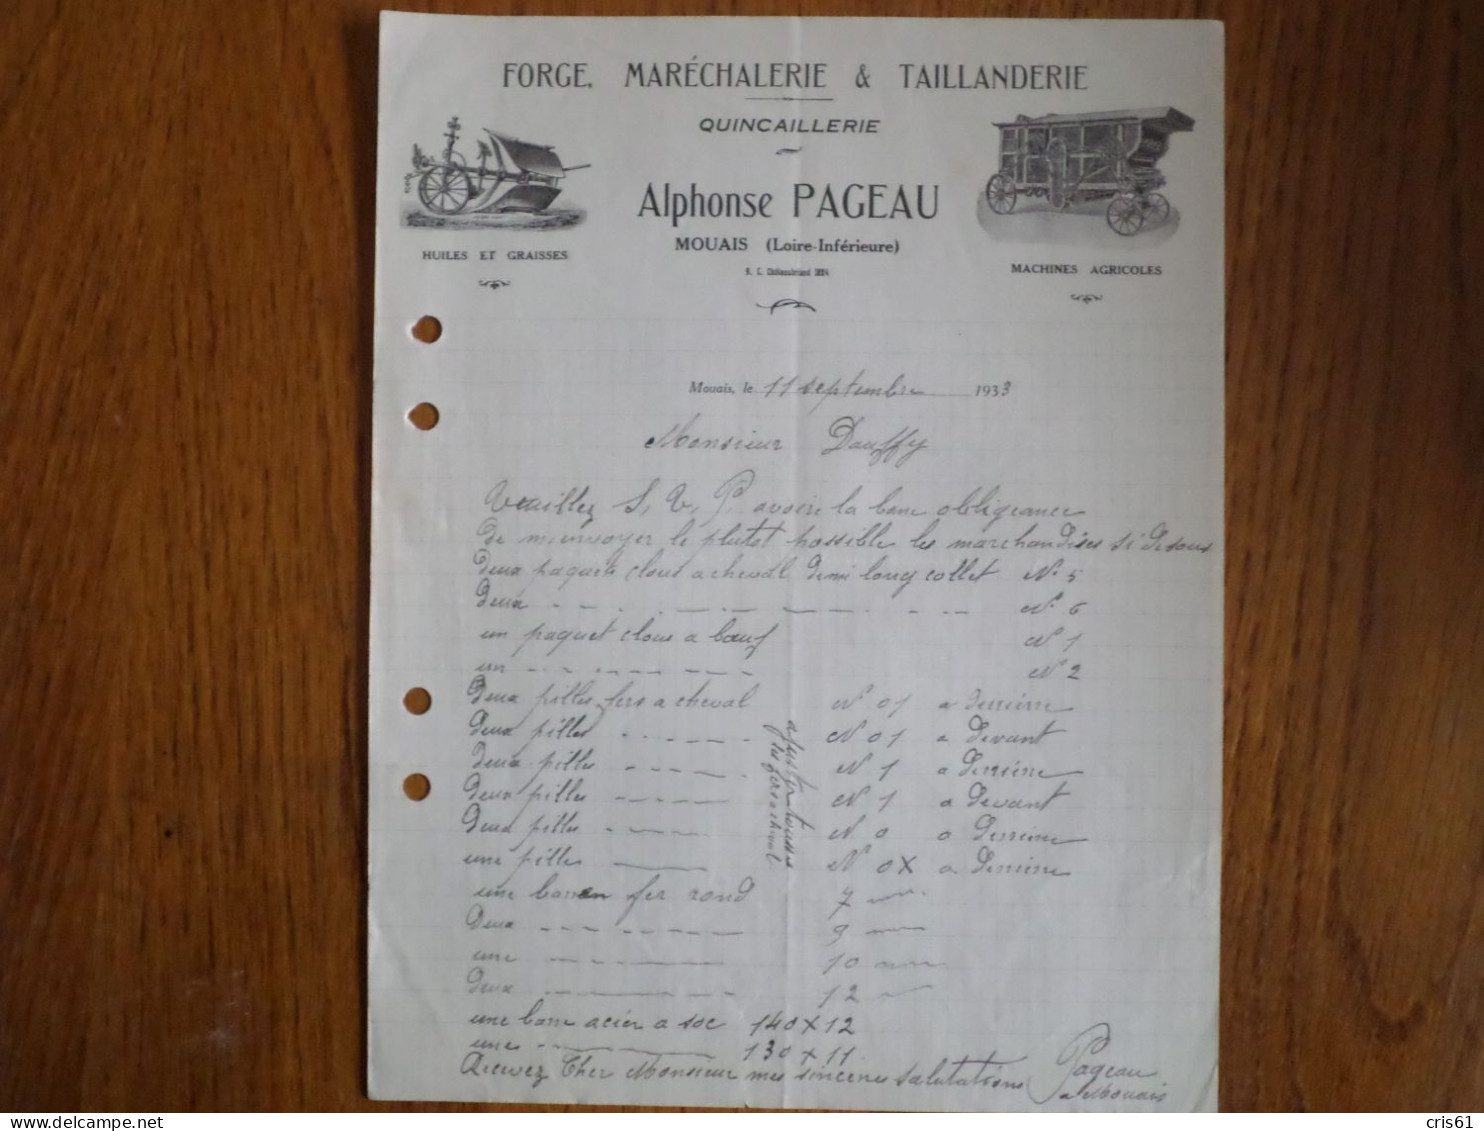 FORGE, MARÉCHALERIE & TAILLANDERIE
QUINCAILLERIE
Alphonse PAGEAU
MOUAIS (Loire-Inférieure)
R. C. Châteaubriand 1894
HUILES ET GRAISSES
MACHINES AGRICOLES
Mouais, le 11 septembre 1933
Monsieur Dauffy
Veuillez S. V. P. avoire la bone obligeance
de m'envoyer le plutot possible les marchandises si desous
deux paquets clous a cheval demi long collet N. 5
deux - - - - - - - - - N. 6
un paquet clous a bœuf N 1
un - - - - - - - N 2
deux pilles fers a cheval N 01 a derrière
deux pilles - - - - - N 01 a devant
deux pilles - - - - - N 1 a derrière
deux pilles - - - - - N 1 a devant
deux pilles - - - - N 0 a derrière
une pille ——— N 0X a derrière
ajuster tousses
les fers a cheval
une barre fer rond 7 mm
deux - - - - - - - 9 mm
une - - - - - - 10 mm
deux - - - - - - 12 mm
une barre acier a soc 140 x 12
une - ——— 130 x 11
Recevez Cher Monsieur mes sincères salutations Pageau
a Mouais
cris61